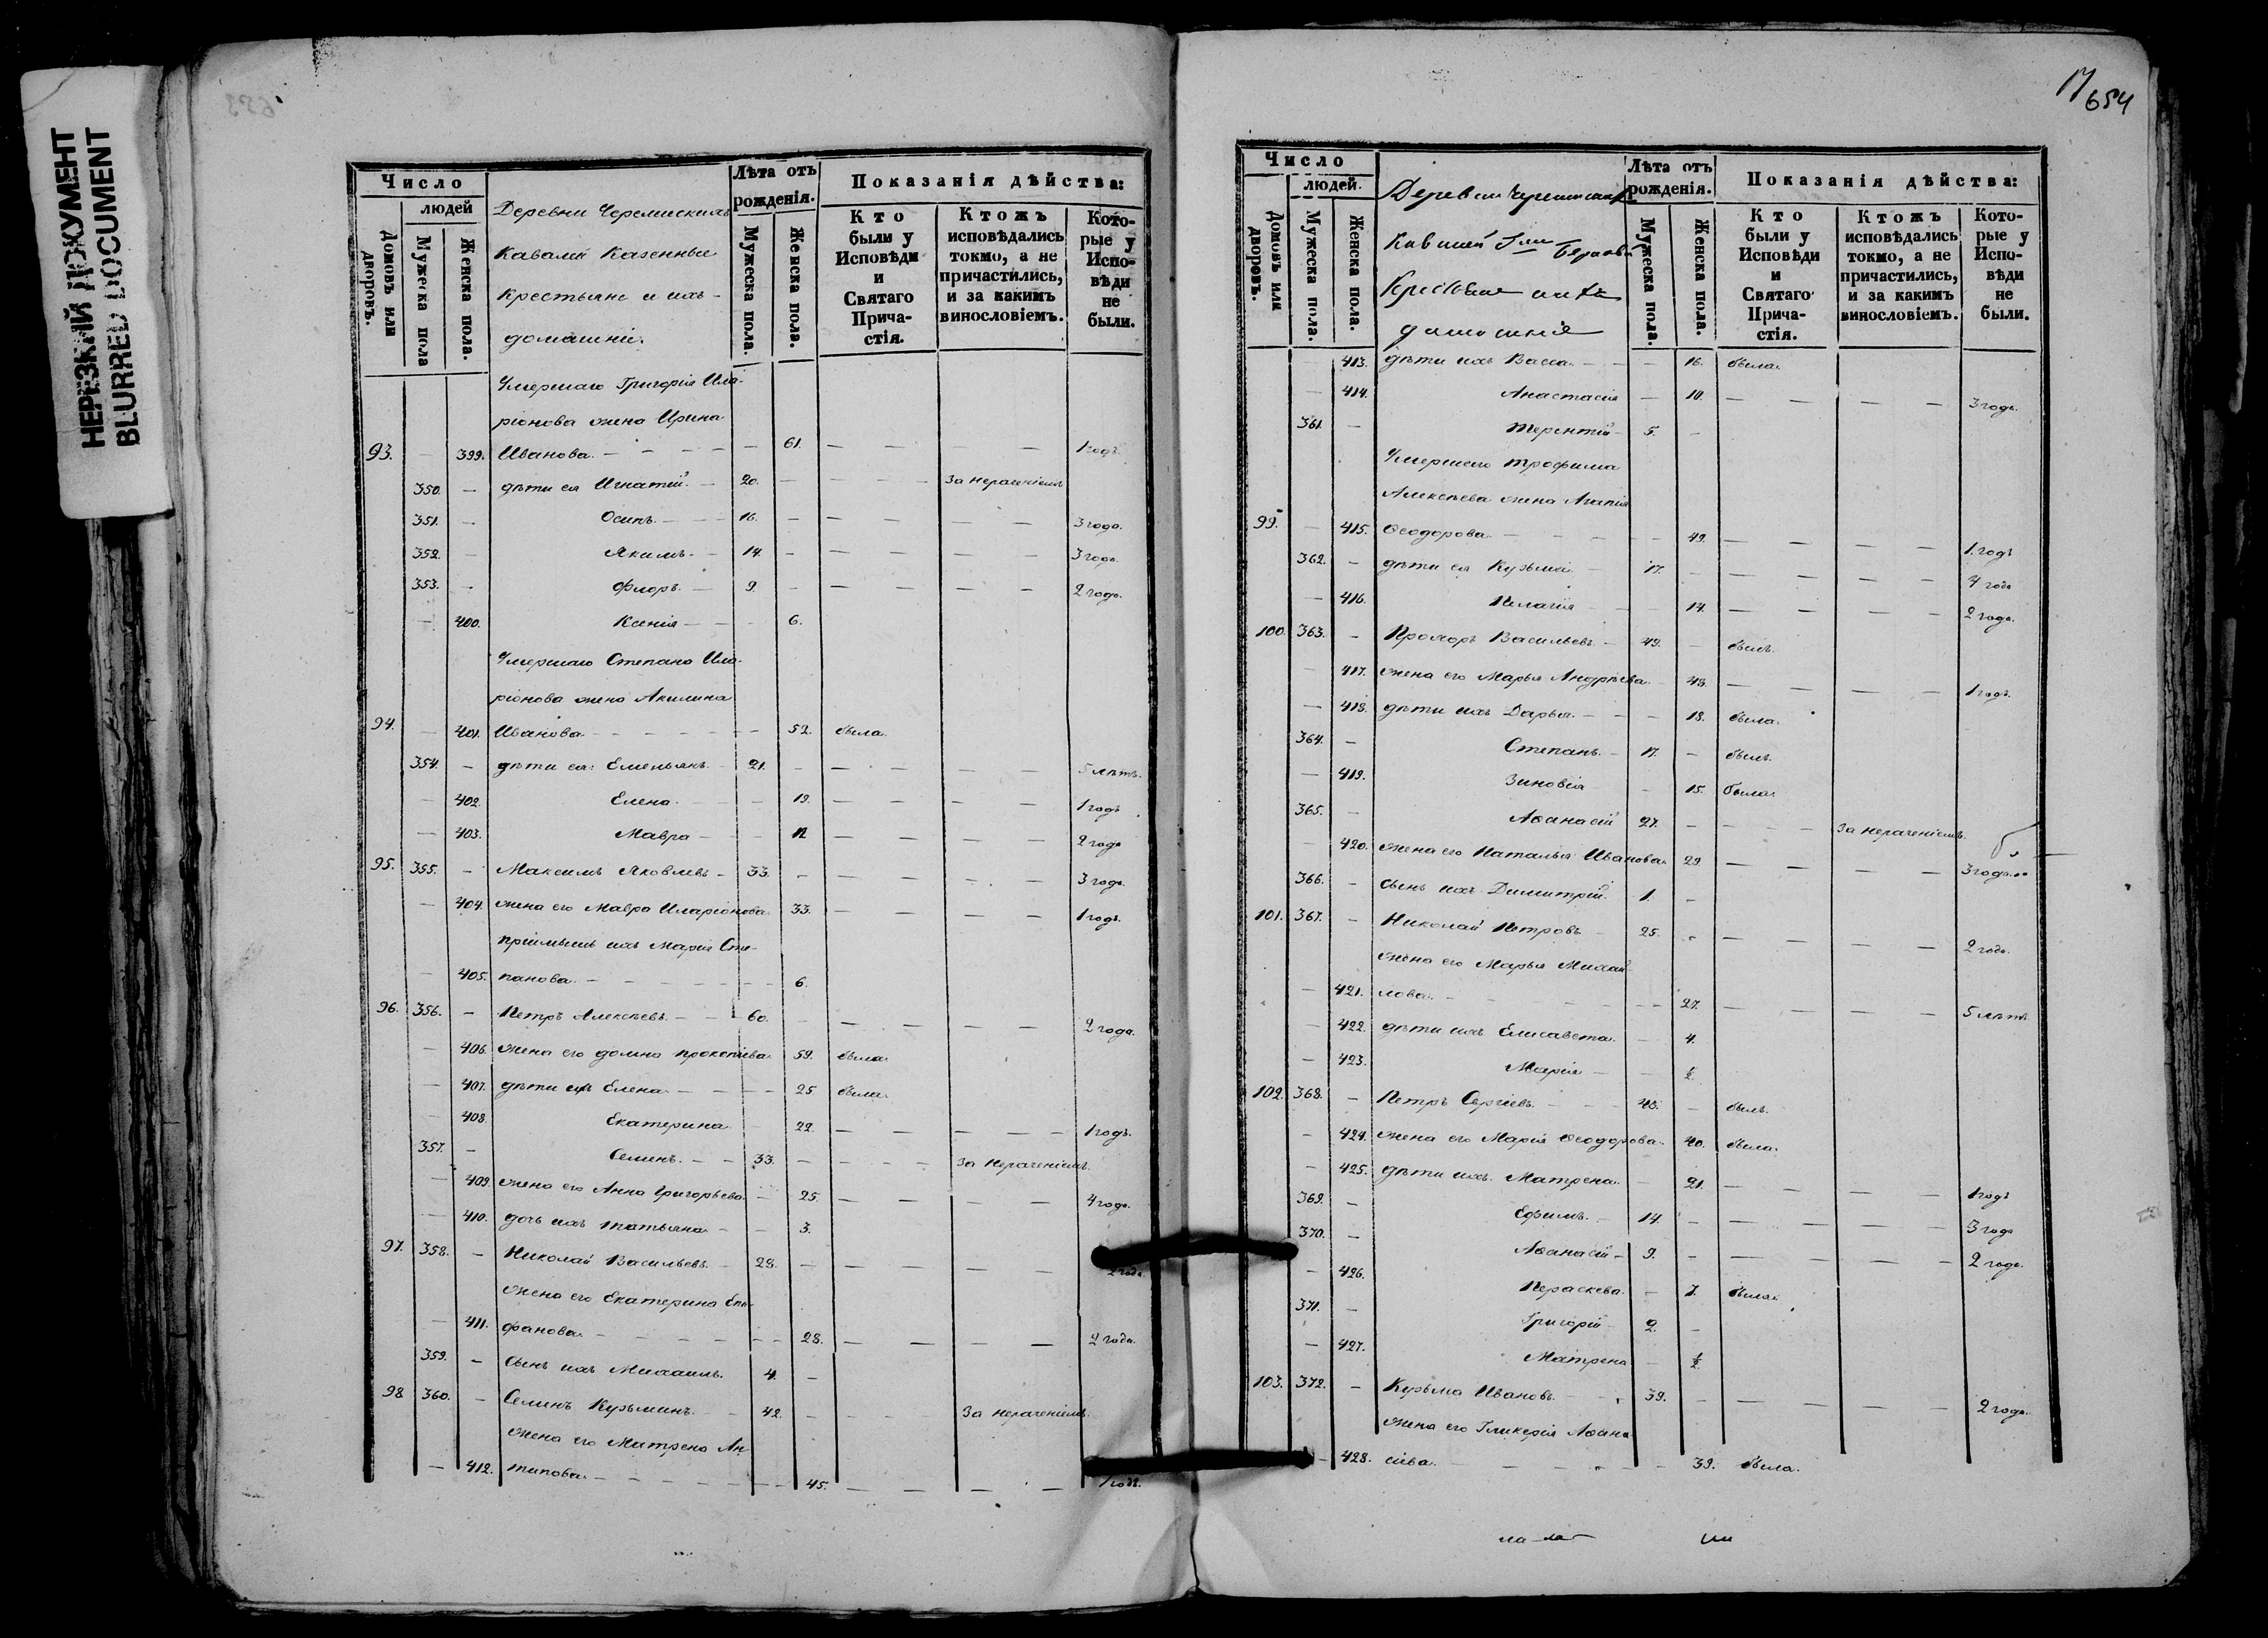 НЕРЕЗКИЙ ДОКУМЕНТ
BLURRED DOCUMENT
654
Число
людей
Домовъ или дворовъ.
Мужеска пола
Женска пола.
Деревни Черемискихъ
Кавалей Казенные
Крестьяне и ихъ
домашніи.
Лѣта отъ рожденія.
Мужеска пола.
Женска пола.
Показанія дѣйства:
Кто были у Исповѣди и Святаго Прича-стія.
Ктожъ исповѣдались токмо, а не причастились, и за какимъ винословіемъ.
Кото-рые у Испо-вѣди не были.
Умершаго Григорія Ила-
ріонова жена Ирина
93. — 399. Иванова. — 61. — — 1 годъ.
350. — дѣти ея Игнатій. — 20. — — за нераченіемъ
351. — Осипъ. — 16. — — 3 года.
352. — Якимъ. — 14. — — 3 года.
353. — Флоръ. — 9. — — 2 года.
— 400. Ксенія — 6.
Умершаго Степана Ила-
ріонова жена Акилина
94. — 401. Иванова. — 52. была.
354. — дѣти ея: Емельянъ. — 21. — — 5 лѣтъ.
— 402. Елена. — 19. — — 1 годъ
— 403. Мавра — 12 — — 2 года
95. 355. — Максимъ Яковлевъ — 33. — — 3 года.
— 404. жена его Мавра Иларіонова. 33. — — 1 годъ.
пріимышъ ихъ Марія Сте-
— 405. панова. — 6.
96. 356. — Петръ Алексѣевъ. — 60. — — 2 года.
— 406. жена его Домна Прокопіева. 59. была.
— 407. дѣти ихъ Елена. — 25. была.
— 408. Екатерина. 22. — — 1 годъ.
357. — Семенъ. — 33. — — за нераченіемъ.
— 409. жена его Анна Григорьева. — 25. — — 4 года.
— 410. дочь ихъ Татьяна. — 3.
97. 358. — Николай Васильевъ. — 28. — — 2 года
жена его Екатерина Епи-
— 411. фанова. — 28. — — 2 года.
359. — сынъ ихъ Михаилъ. 4. —
98 360. — Семенъ Кузьминъ. — 42. — — за нераченіемъ.
жена его Матрена Ан-
— 412. типова. — 45. — — 1 годъ.
Число
людей.
Домовъ или дворовъ.
Мужеска пола.
Женска пола.
Деревни
Крестьяне и ихъ
домашніе
Лѣта отъ рожденія.
Мужеска пола.
Женска пола.
Показанія дѣйства:
Кто были у Исповѣди и Святаго Прича-стія.
Ктожъ исповѣдались токмо, а не причастились, и за какимъ винословіемъ.
Кото-рые у Испо-вѣди не были.
— 413. дѣти ихъ Васса. — 16. была.
— 414. Анастасія — 10. — — 3 года.
361. — Терентій — 5. —
Умершаго Трофима
Алексѣева жена Агапія
99. — 415. Ѳеодорова. — 49. — — 1. годъ
362. — дѣти ея Кузьма. — 17. — — 4 года
— 416. Пелагія — 14. — — 2 года.
100. 363. — Прохоръ Васильевъ. — 49. — былъ.
— 417. жена его Марья Андрѣева. 48. — — 1 годъ.
— 418. дѣти ихъ Дарья. — 18. была.
364. — Степанъ. — 17. — былъ.
— 419. Зиновія — 15. была.
365. — Аѳанасій 27. — — за нераченіемъ.
— 420. жена его Наталья Иванова. 29 — — 3 года.
366. — сынъ ихъ Димитрій. 1. —
101. 367. — Николай Петровъ — 25. — — 2 года.
жена его Марья Михай-
— 421. лова. — 27. — — 5 лѣтъ
— 422. дѣти ихъ Елисавета. — 4.
— 423. Марія — ½
102. 368. — Петръ Сергіевъ. — 43. — былъ.
— 424. жена его Марія Ѳеодорова. 40. была.
— 425. дѣти ихъ. Матрена. — 21. — — 1 годъ
369. — Ефимъ. — 14. — — 3 года
370. — Аѳанасій — 9. — — 2 года.
— 426. Параскева. — 7. была.
371. — Григорій — 2. —
— 427. Матрена — ½
103. 372. — Кузьма Ивановъ. — 39. — — 2 года.
жена его Гликерія Аѳана-
— 428. сіева. — 39. была.